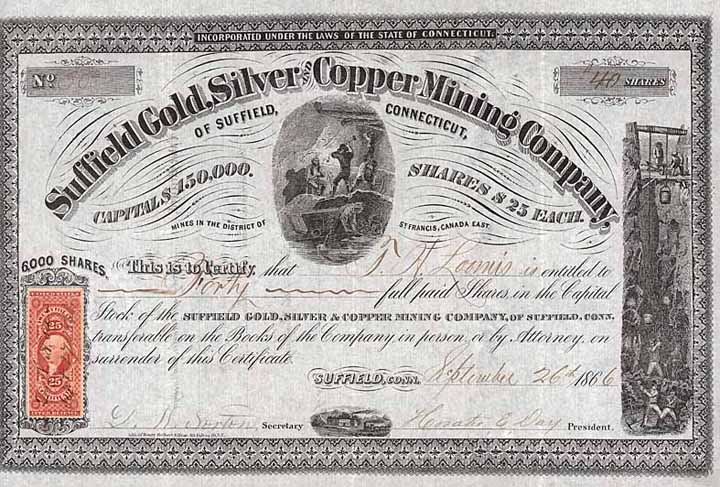 INCORPORATED UNDER THE LAWS OF THE STATE OF CONNECTICUT.
No
40 SHARES
Suffield Gold, Silver AND Copper Mining Company,
OF SUFFIELD, CONNECTICUT,
CAPITAL $ 150,000. SHARES $ 25 EACH.
MINES IN THE DISTRICT OF ST FRANCIS, CANADA EAST.
6,000 SHARES,
This is to Certify, that Loomis is entitled to
Forty full paid Shares, in the Capital
Stock of the SUFFIELD GOLD, SILVER & COPPER MINING COMPANY, OF SUFFIELD, CONN.
transferable on the Books of the Company, in person, or by Attorney, on
surrender of this Certificate.
25 25
SUFFIELD, CONN. September 26th 1866
Secretary President.